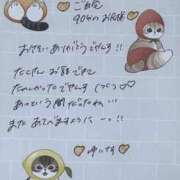 ご自宅
90分のお兄様
おさそい ありがとうございます!!
たくさん お話できて
たのしかったです (つ´`)
あっという間だったね…
また あそべますように…♡
ゆいな